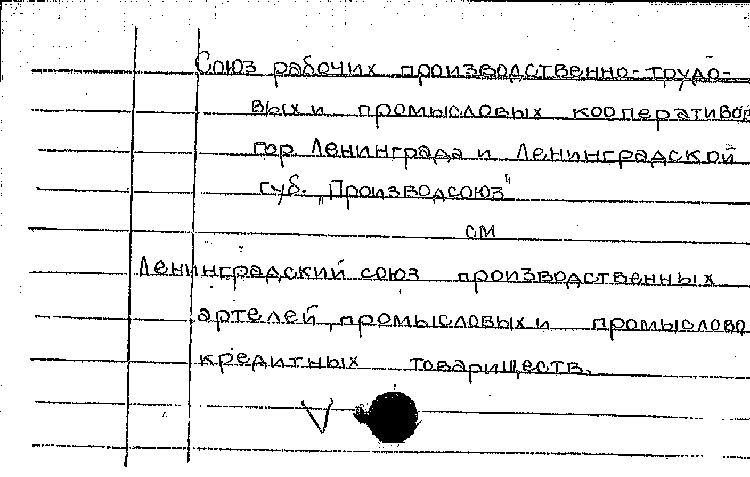 Союз рабочих производственно-трудо-
вых и промысловых кооперативов
гор Ленинграда и Ленинградской
губ. "Производсоюз"
см
Ленинградский союз производственных
артелей, промысловых и промыслово
кредитных товариществ.